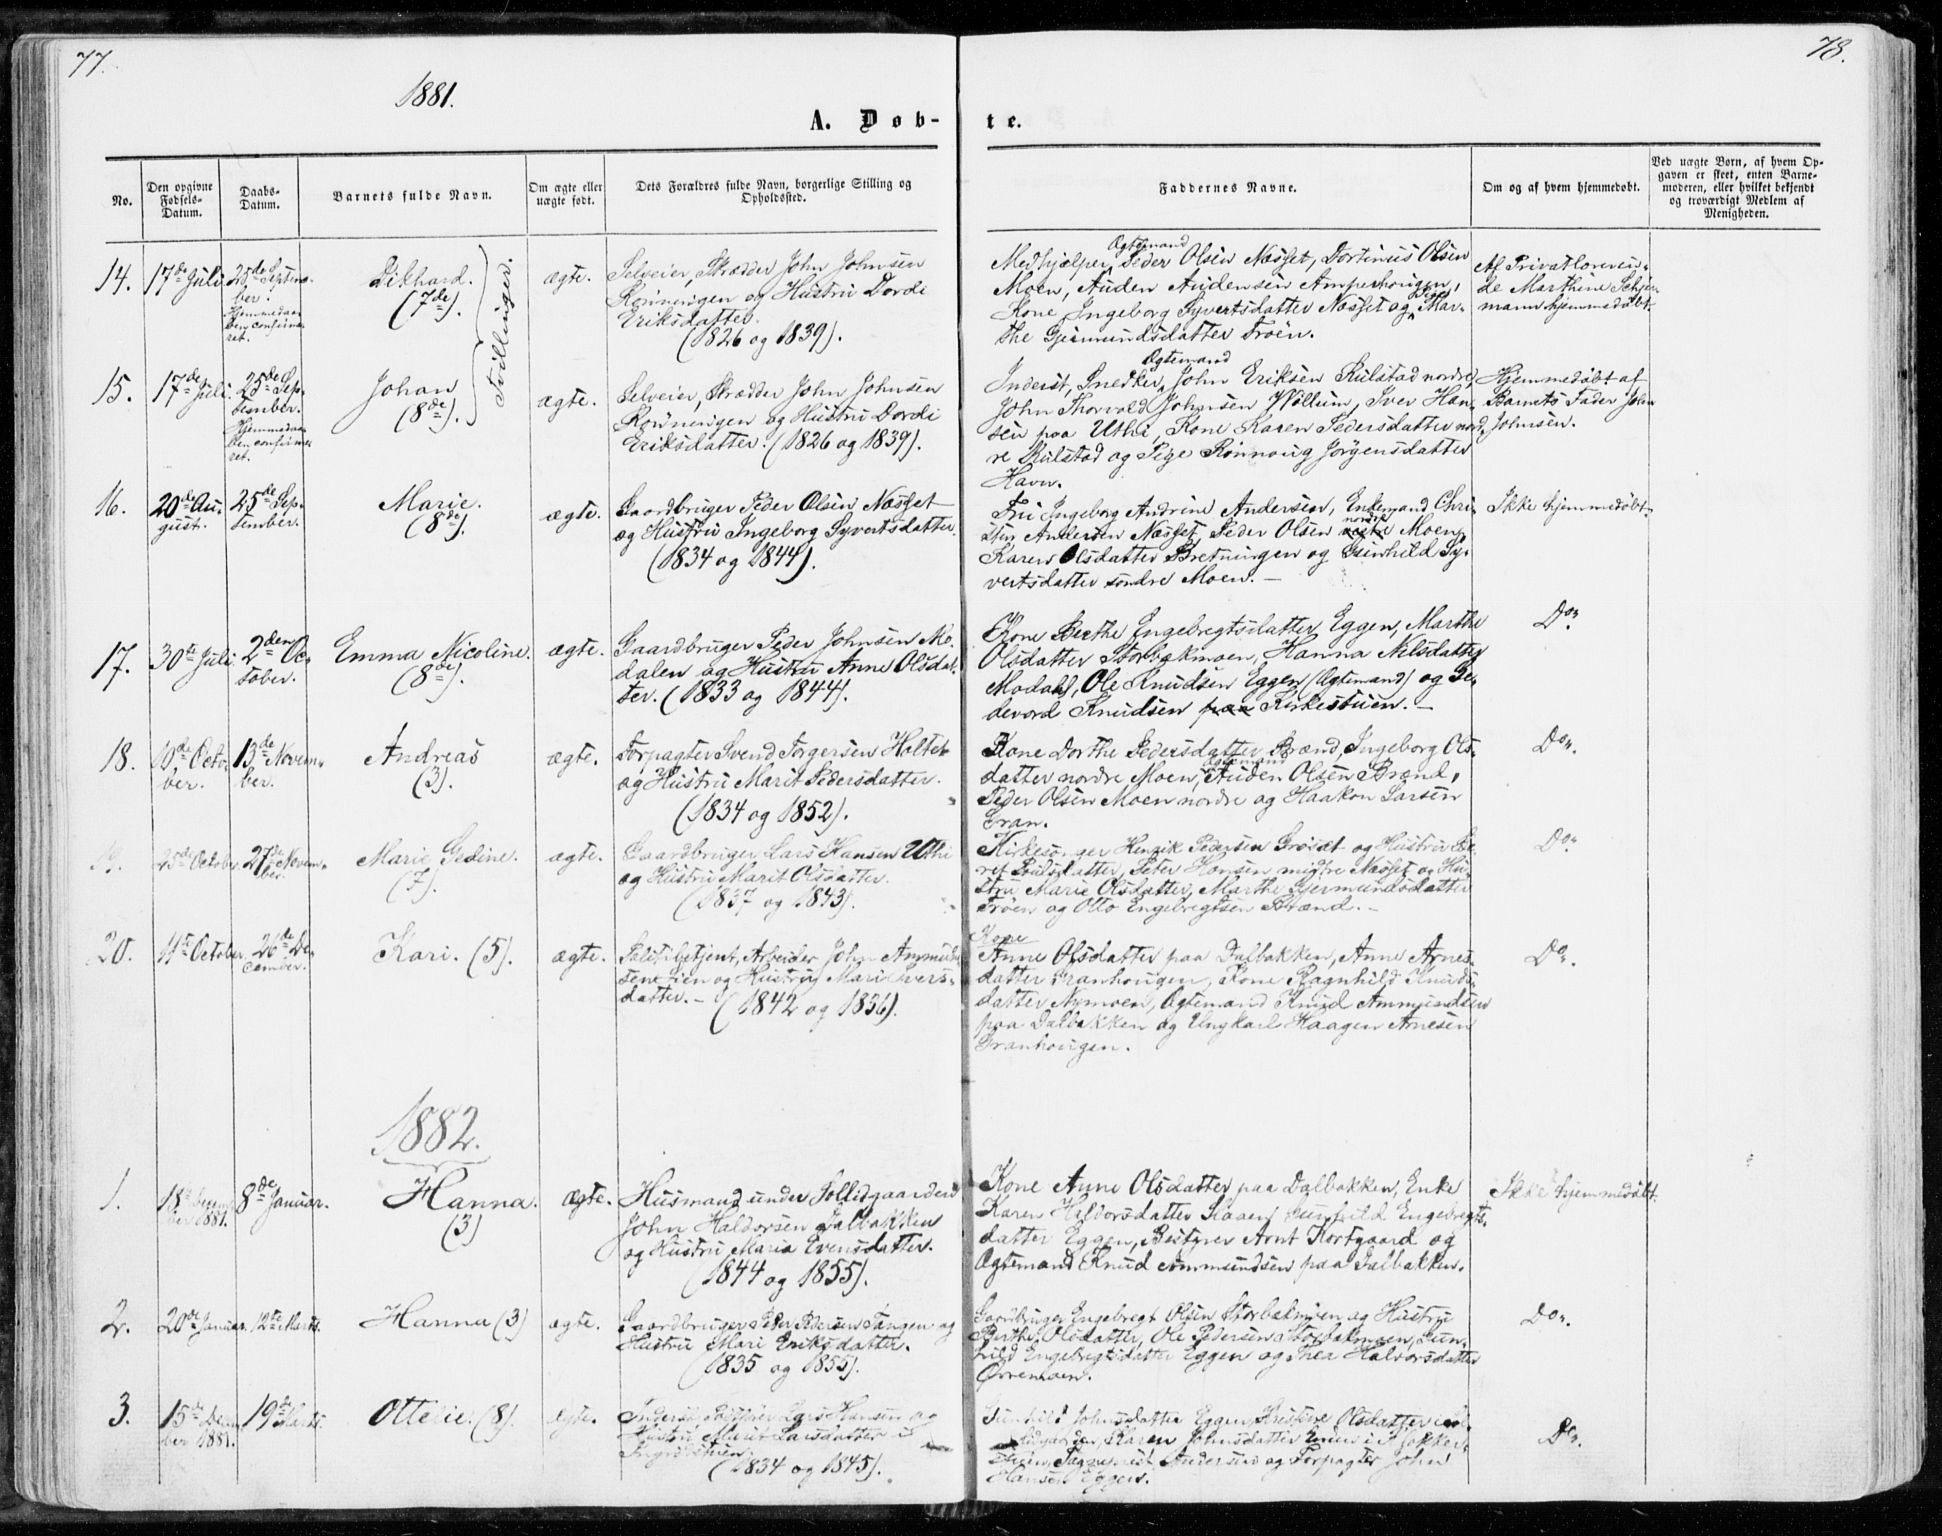 77.
78.
1881.
A. Døb-
te.
No.
Den opgivne
Fødsels-
Datum.
Daabs-
Datum.
Barnets fulde Navn.
Om ægte eller
uægte født.
Dets Forældres fulde Navn, borgerlige Stilling og
Opholdssted.
Faddernes Navne.
Om og af hvem hjemmedøbt.
Ved uægte Børn, af hvem Op-
gaven er skeet, enten Barne-
moderen, eller hvilket bekjendt
og troværdigt Medlem af
Menigheden.
14.
17de Juli
25de Septem-
ber.
Hjemmedaa-
ben confirme-
ret.
(7de).
Tvillinger.
ægte.
Selveier, Skrædder John Johnsen
Rønningen og Hustru Dordi
Eriksdatter.
(1826 og 1839).
Ægtemand
Medhjælper, Peder Olsen Næsset, Dortinus Olsen
Moen, Auden Audensen Amperhougen,
Kone Ingeborg Syvertsdatter Næsset og Pige Mar-
the Gjermundsdatter Trøen.
Af Privatlæreren-
de Marthine Schjer-
mann hjemmedøbt
15.
17de Juli.
25de Sep-
tember.
Hjemmedaa-
ben confirme-
ret.
Johan
(8de).
ægte.
Selveier, Skrædder John Johnsen
Rønningen og Hustru Dordi
Eriksdatter. (1826 og 1839).
Ægtemand
Inderst, Snedker, John Eriksen Rulstad nordre,
John Thorvald Johnsen Vollum, Iver Han-
sen paa Uthi, Kone Karen Pedersdatter nord-
re Rulstad og Pige Rønnoug Jørgensdatter
Haver.
Hjemmedøbt af
Barnets Fader John
Johnsen.
16.
20de Au-
gust.
25de Sep-
tember.
Marie.
(8de).
ægte.
Gaardbruger Peder Olsen Næsset
og Hustru Ingeborg Syvertsdatter.
(1834 og 1844).
Fru Ingeborg Andrine Andersen, Enkemand Chri-
sten Andersen Næsset, Peder Olsen nordre Moen,
Karen Olsdatter Bretningen og Gunhild Sy-
vertsdatter søndre Moen. –
Ikke hjemmedøbt
17.
30te Juli.
2den Oc-
tober.
Emma Nicoline.
(8de).
ægte.
Gaardbruger Peder Johnsen Mo-
dalen og Hustru Anne Olsdat-
ter. (1833 og 1844).
Kone Berthe Engebregtsdatter Eggen, Marthe
Olsdatter Storbakmoen, Hanna Nilsdatter
Modahl, Ole Knudsen Eggen (Ægtemand) og Pe-
devord Knudsen paa Kirkestuen. –
Do.
18.
10de Octo-
ber.
13de Novem-
ber.
Andreas
(3).
ægte.
Forpagter Svend Torgersen Haltet
og Hustru Marit Pedersdatter.
(1834 og 1852).
Kone Dorthe Pedersdatter Brænd, Ingeborg Ols-
datter nordre Moen, Ægtemand Auden Olsen Brænd,
Peder Olsen Moen nordre og Haakon Larsen
Gran.
Do.
19.
25de October
27de Novem-
ber.
Marie Gedine.
(7).
ægte.
Gaardbruger Lars Hansen Uthi
og Hustru Marit Olsdatter.
(1837 og 1843).
Kirkesanger Henrik Pedersen Grøsæt og Hustru Be-
ret Poulsdatter, Peter Hansen midtre Næsset og Hu-
stru Marie Olsdatter, Marthe Gjermundsdatter
Trøen og Otto Engebregtsen Brænd. –
Do.
20.
11te October.
26de De-
cember.
Kari. (5).
ægte.
Politibetjent, Arbeider John Ammund-
sen Lien og Hustru Mari Ivers-
datter. –
(1842 og 1836).
Kone
Anne Olsdatter paa Dalbakken, Anne Arnes-
datter Granhougen, Kone Ragnhild Knuds-
datter Nymoen, Ægtemand Knud Ammundsen
paa Dalbakken og Ungkarl Haagen Arnesen
Granhougen.
Do.
1882.
1.
18de Decem-
ber 1881.
8de Januar.
Hanna.
(3)
ægte.
Husmand under Follidgaarden
John Haldorsen Dalbakken
og Hustru Maria Evensdatter.
(1844 og 1855).
Kone Anne Olsdatter paa Dalbakken, Enke
Karen Haldorsdatter Kaaen, Gunhild Engebregts-
datter Eggen, Bestyrer Arnt Kortgaard og
Ægtemand Knud Ammundsen paa Dalbakken.
Ikke hjemmedøbt.
2.
20de Januar.
12te Marts.
Hanna (3)
ægte.
Gaardbruger Peder Pedersen Tangen og
Hustru Mari Eriksdatter.
(1835 og 1855).
Gaardbruger Engebregt Olsen Storbakmoen og Hustru
Berthe Olsdatter, Ole Pedersen Storbakmoen, Gun-
hild Engebregtsdatter Eggen og Thea Halvorsdatter
Øvremoen.
Do.
3.
15de Decem-
ber 1881.
19de Marts.
Ottelie. (8).
ægte.
Inderst, Lars Hansen og
Hustru Marit Larsdatter i
(1834 og 1845).
Gunhild Johnsdatter Eggen, Kristine Olsdatter
Karen Johnsdatter
Andersen og Forpagter John
Hansen Eggen.
Do.